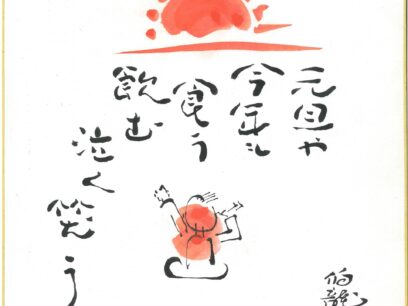 元旦や
今年も
食う
飲む
泣く
笑う
伯龍